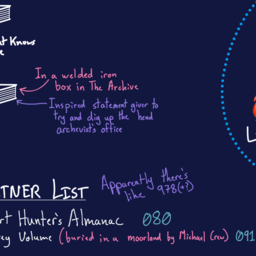 t Knows
In a welded iron
box in The Archive
Inspired statement giver to
try and dig up the head
archivist's office
L
TNER LIST
Apparently there's
like 978(?)
rt Hunter's Almanac 080
ey Volume (buried in a moorland by Michael (rev) 091